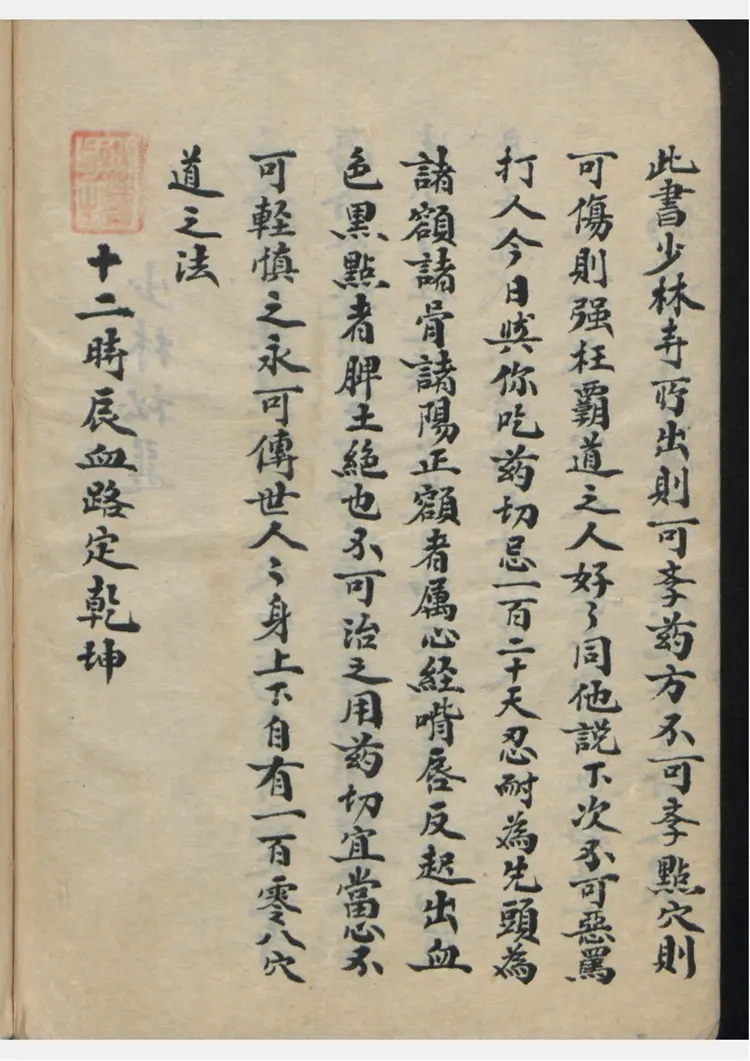 此書少林寺所出則可李药方不可李點穴則
可傷則强枉霸道之人好々同他説下次不可惡罵
打人今日與你吃药切忌一百二十天忍耐為先頭為
諸額諸骨諸陽正額者属心経嘴唇反起出血
色黒點者脾土絕也不可治之用药切宜當心不
可軽慎之永可傳世人々身上下自有一百零八穴
道之法
十二時辰血路定乾坤